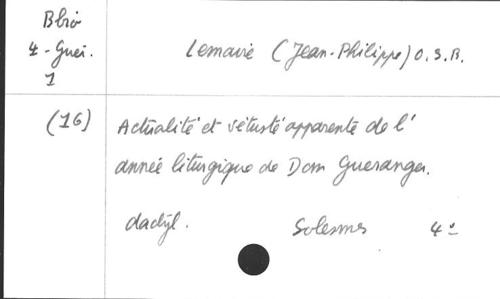 Bbio
4-Guér.
1
Lemarié (Jean-Philippe) O.S.B.
(16)
Actualité et vétusté apparente de l'
année liturgique de Dom Gueranger.
dactyl. Solesmes 4°